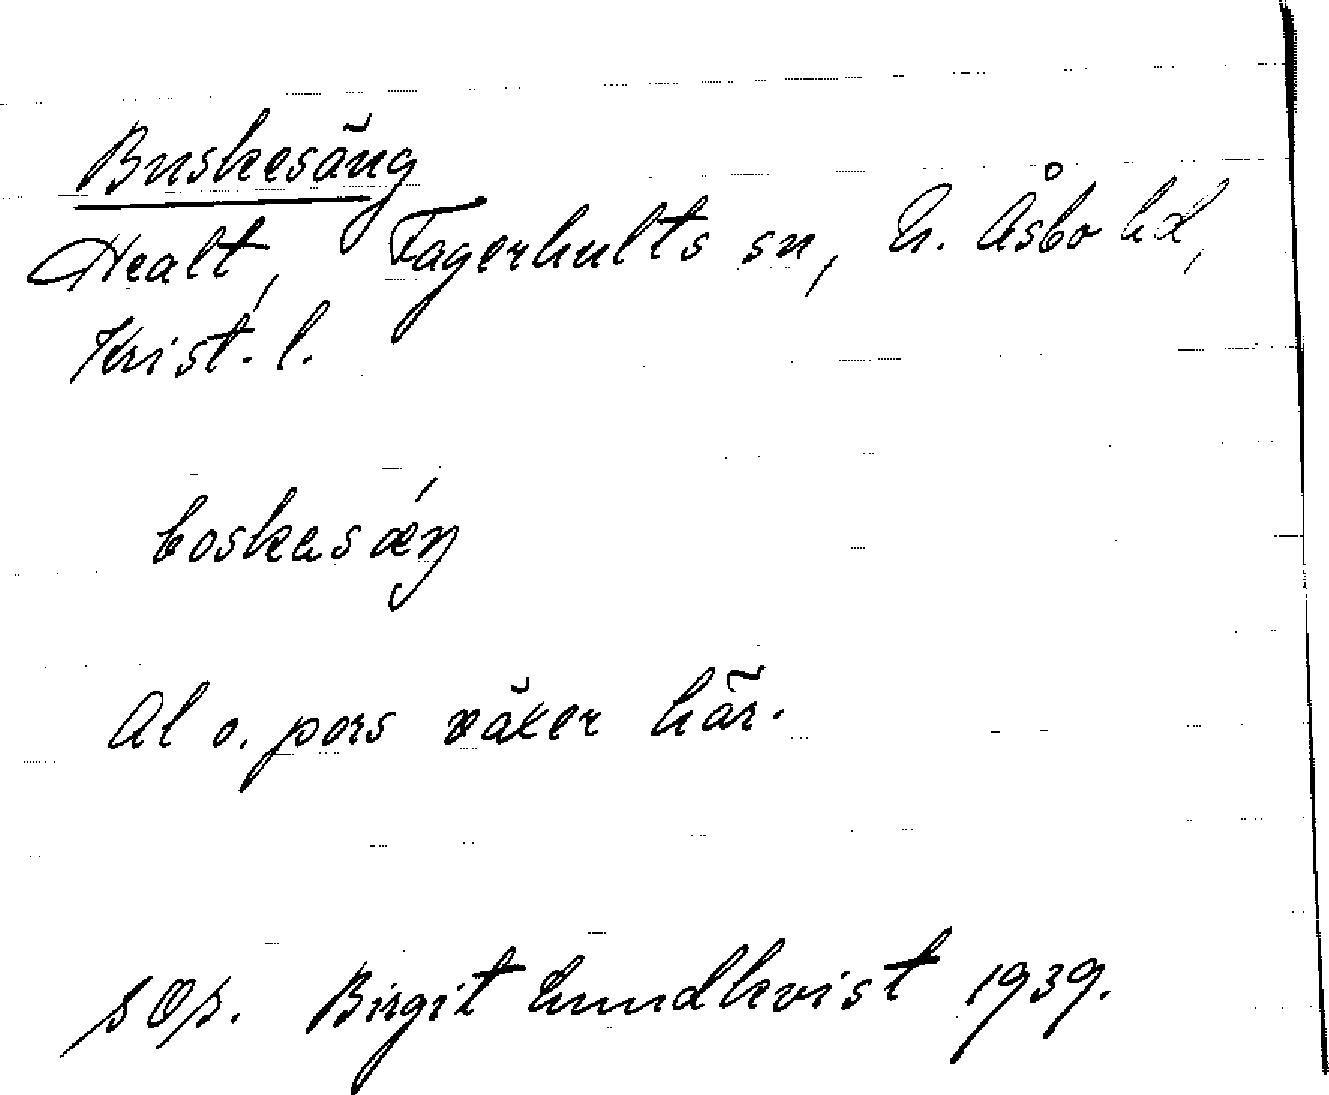 Buskesäng
Healt, Fagerhults sn, N. Åsbo hd,
Krist. l.
boskasǽŋ
Al o. pors växer här.
Birgit Lundkvist 1939.